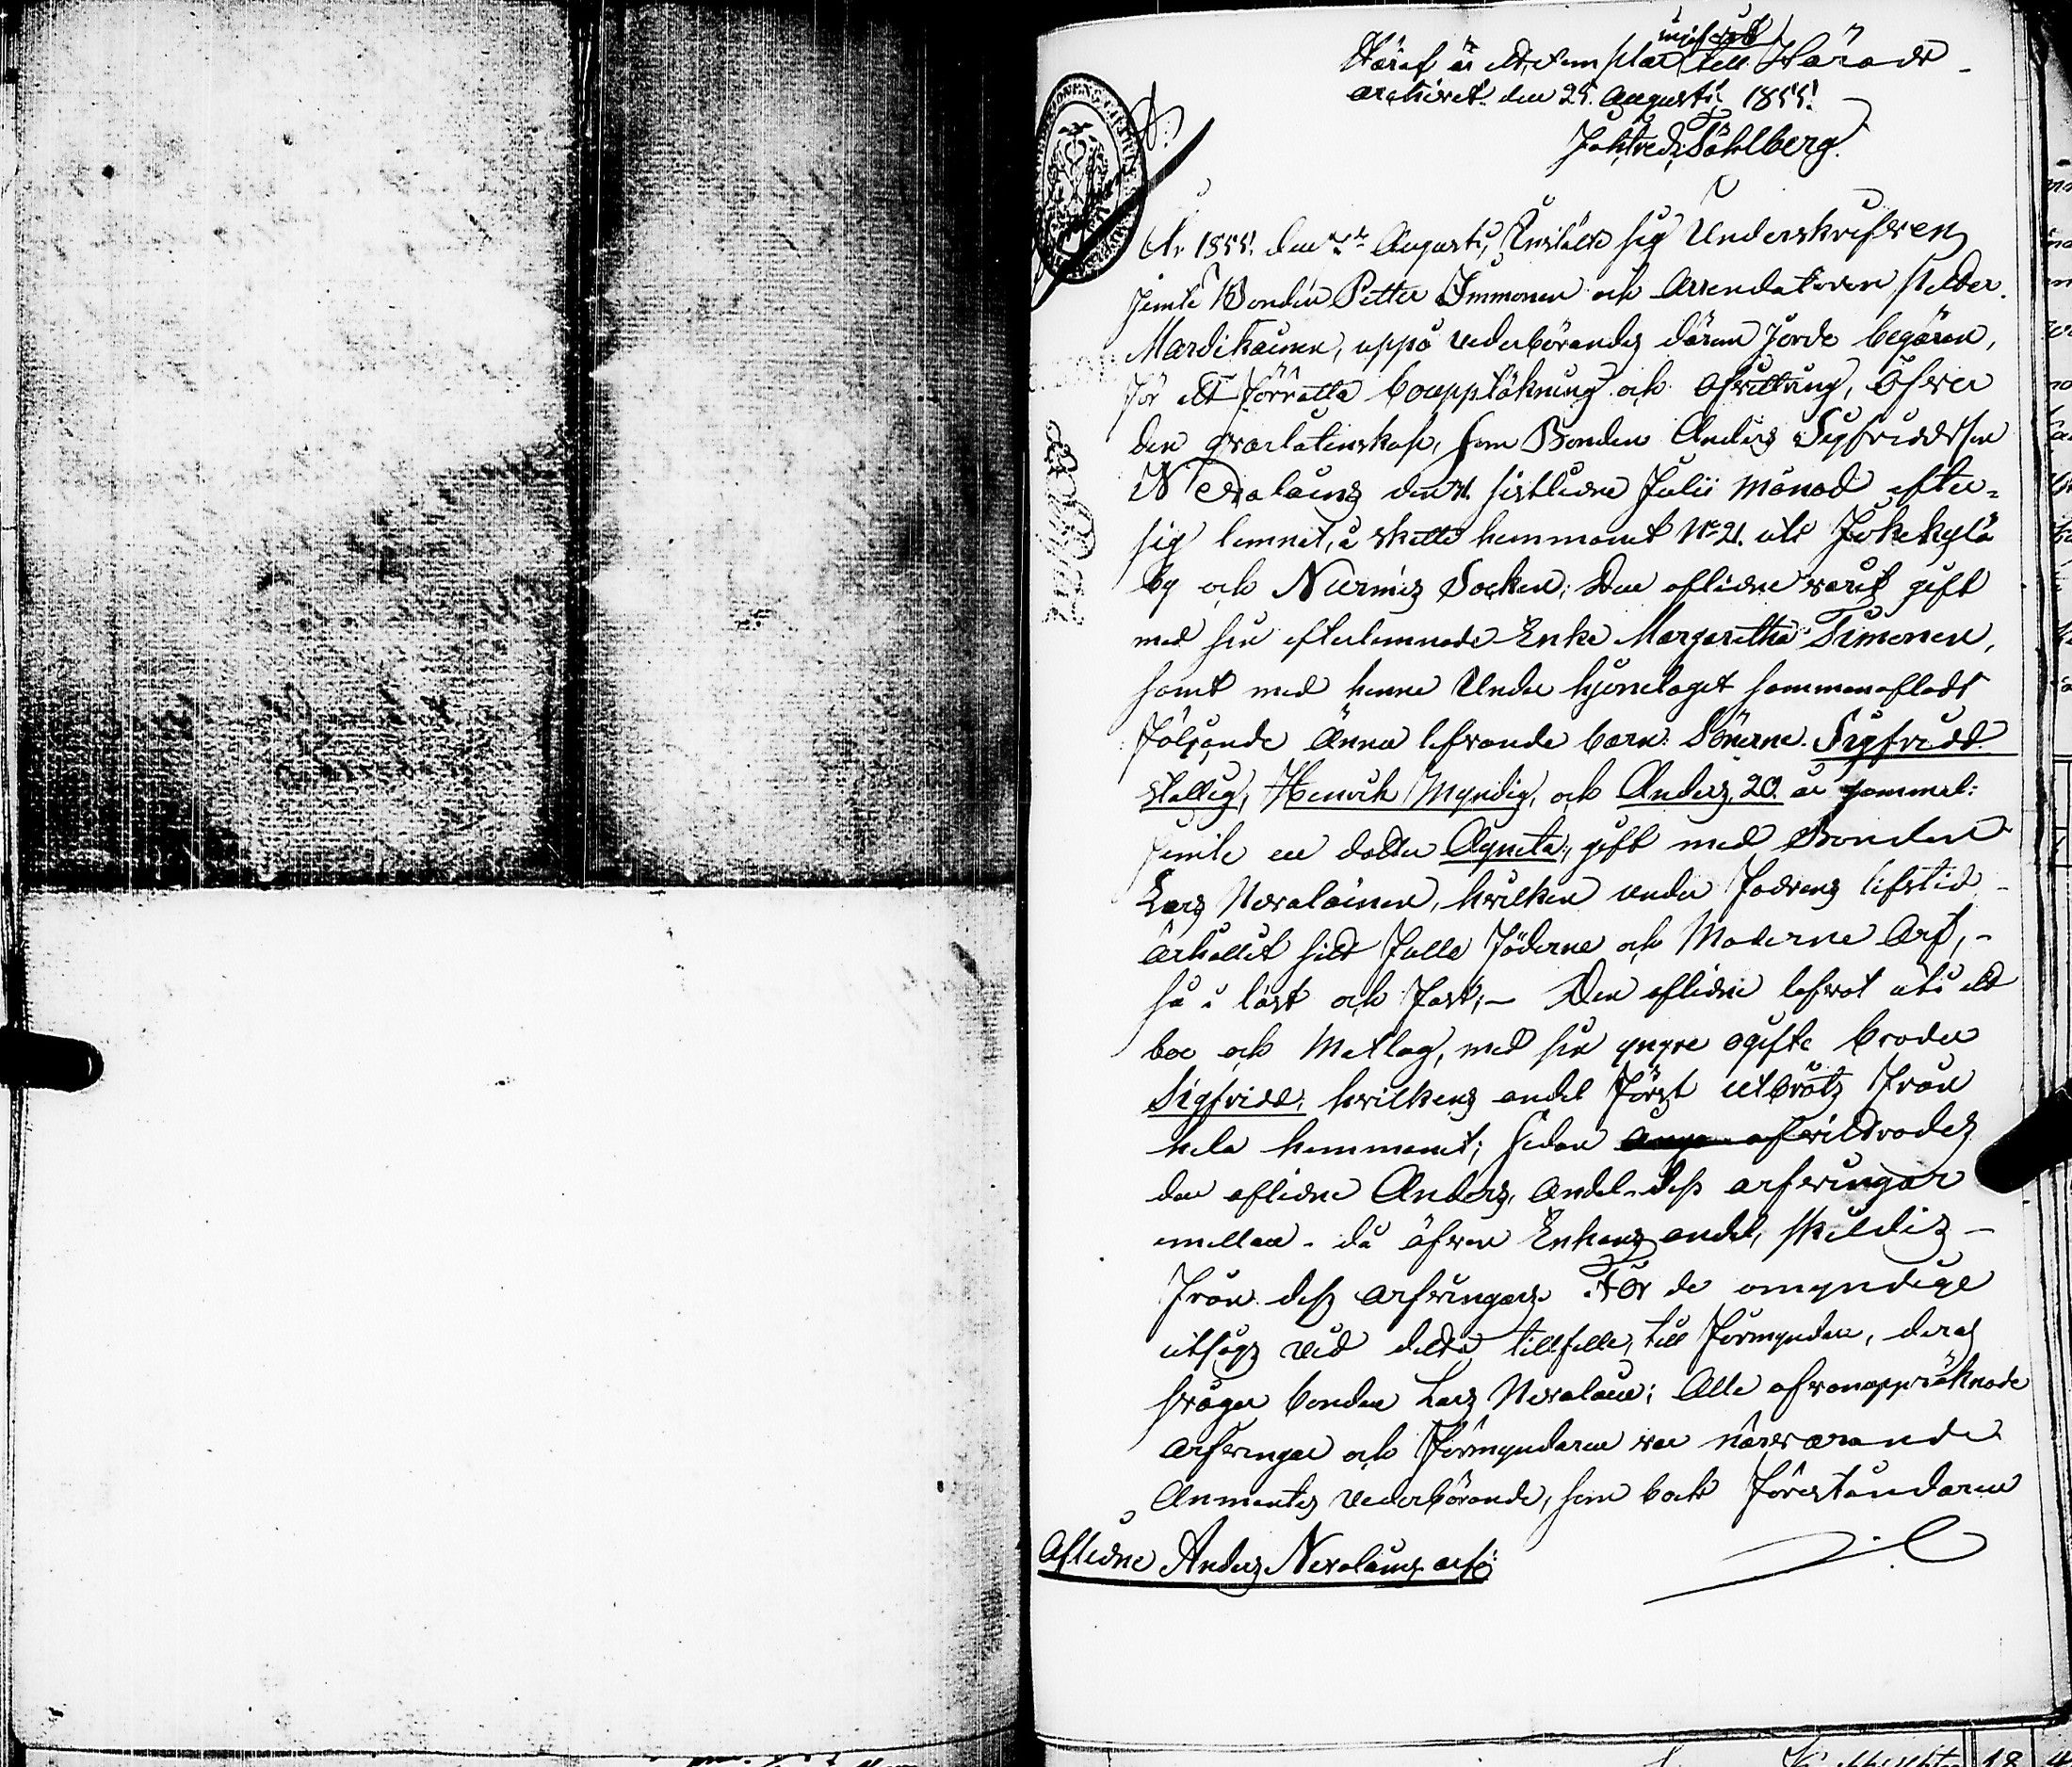 Häraf är ett exemplar till Härads
archivet den 25. Augusti 1855.
Joh Fred Sahlberg.
År 1855. den Augusti, Instälte sig Underskrifven
jemte Bonden Petter Immonen och Arrendatoren Petter
Mardikainen, uppå vederbörandes därom gjorde begäran,
för att förrätta bouppteckning och afvittring, öfver
den qvarlåtenskap, som Bonden Anders Sigfriddsson
Nevalains den sistledne Julii månad efter
sig lemnat, å skatte hemmanet No 21. uti Jokikylä
by och Nurmis Socken; Den aflidne varit gift
med sin efterlemnade Enka Margaretha Timonen,
samt med henne Under hjonelaget sammanaflat
följande Ännu lefvande barn: Sönerne Sigfridd
Henrik Myndig, och Anders, 20. år gammal:
jemte en dotter Agneta, gift med Bonden
Lars Nevalainen, hvilken under fadrens lifstid
ärhållit sitt fulla fäderne och Moderne Arf,
så i löst och fast; — Den aflidne lefvat uti ett
boe och Matlag, med sin yngre ogifte broder
Sigfridd, hvilkens andel först utbröts från
hela hemmanet; sedan afvittrades
den aflidne Anders, andel dess arfvingar
emellan - då äfven Enkans andel, skilldes
från dess arfvingars. För de omyndige
utsågs vid detta tillfälle, till förmyndare, deras
svåger bonden Lars Nevalain; Alle ofvanuppräknade
arfvingar och förmyndaren var närvarande
Anmantes vederbörande, som både föreståndaren
Aflidne Anders Nevalains arf: